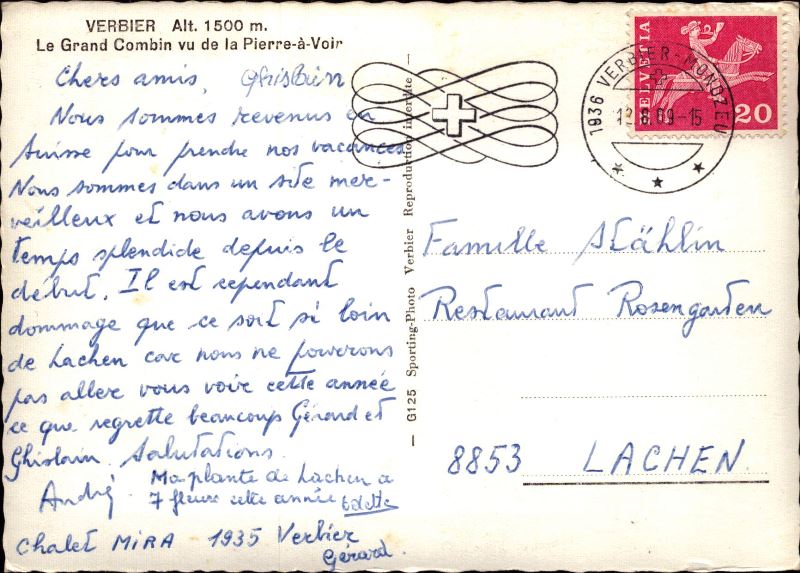 VERBIER Alt. 1500 m.
Le Grand Combin vu de la Pierre-à-Voir
Chers amis, Ghislain
Nous sommes revenus en
Suisse pour prendre nos vacances
Nous sommes dans un site mer-
veilleux et nous avons un
temps splendide depuis le
début. Il est cependant
dommage que ce soit si loin
de Lachen car nous ne pouvons
pas aller vous voir cette année
ce que regrette beaucoup Gérard et
Ghislain. Salutations.
André
Ma plante de Lachen a
7 fleurs cette année Odette
Chalet MIRA 1935 Verbier
Gérard.
— G125 Sporting-Photo Verbier Reproduction interdite —
HELVETIA
20
1936 VERBIER-MONDZEU
12.8.69-15
Famille Stählin
Restaurant Rosengarten
8853 LACHEN